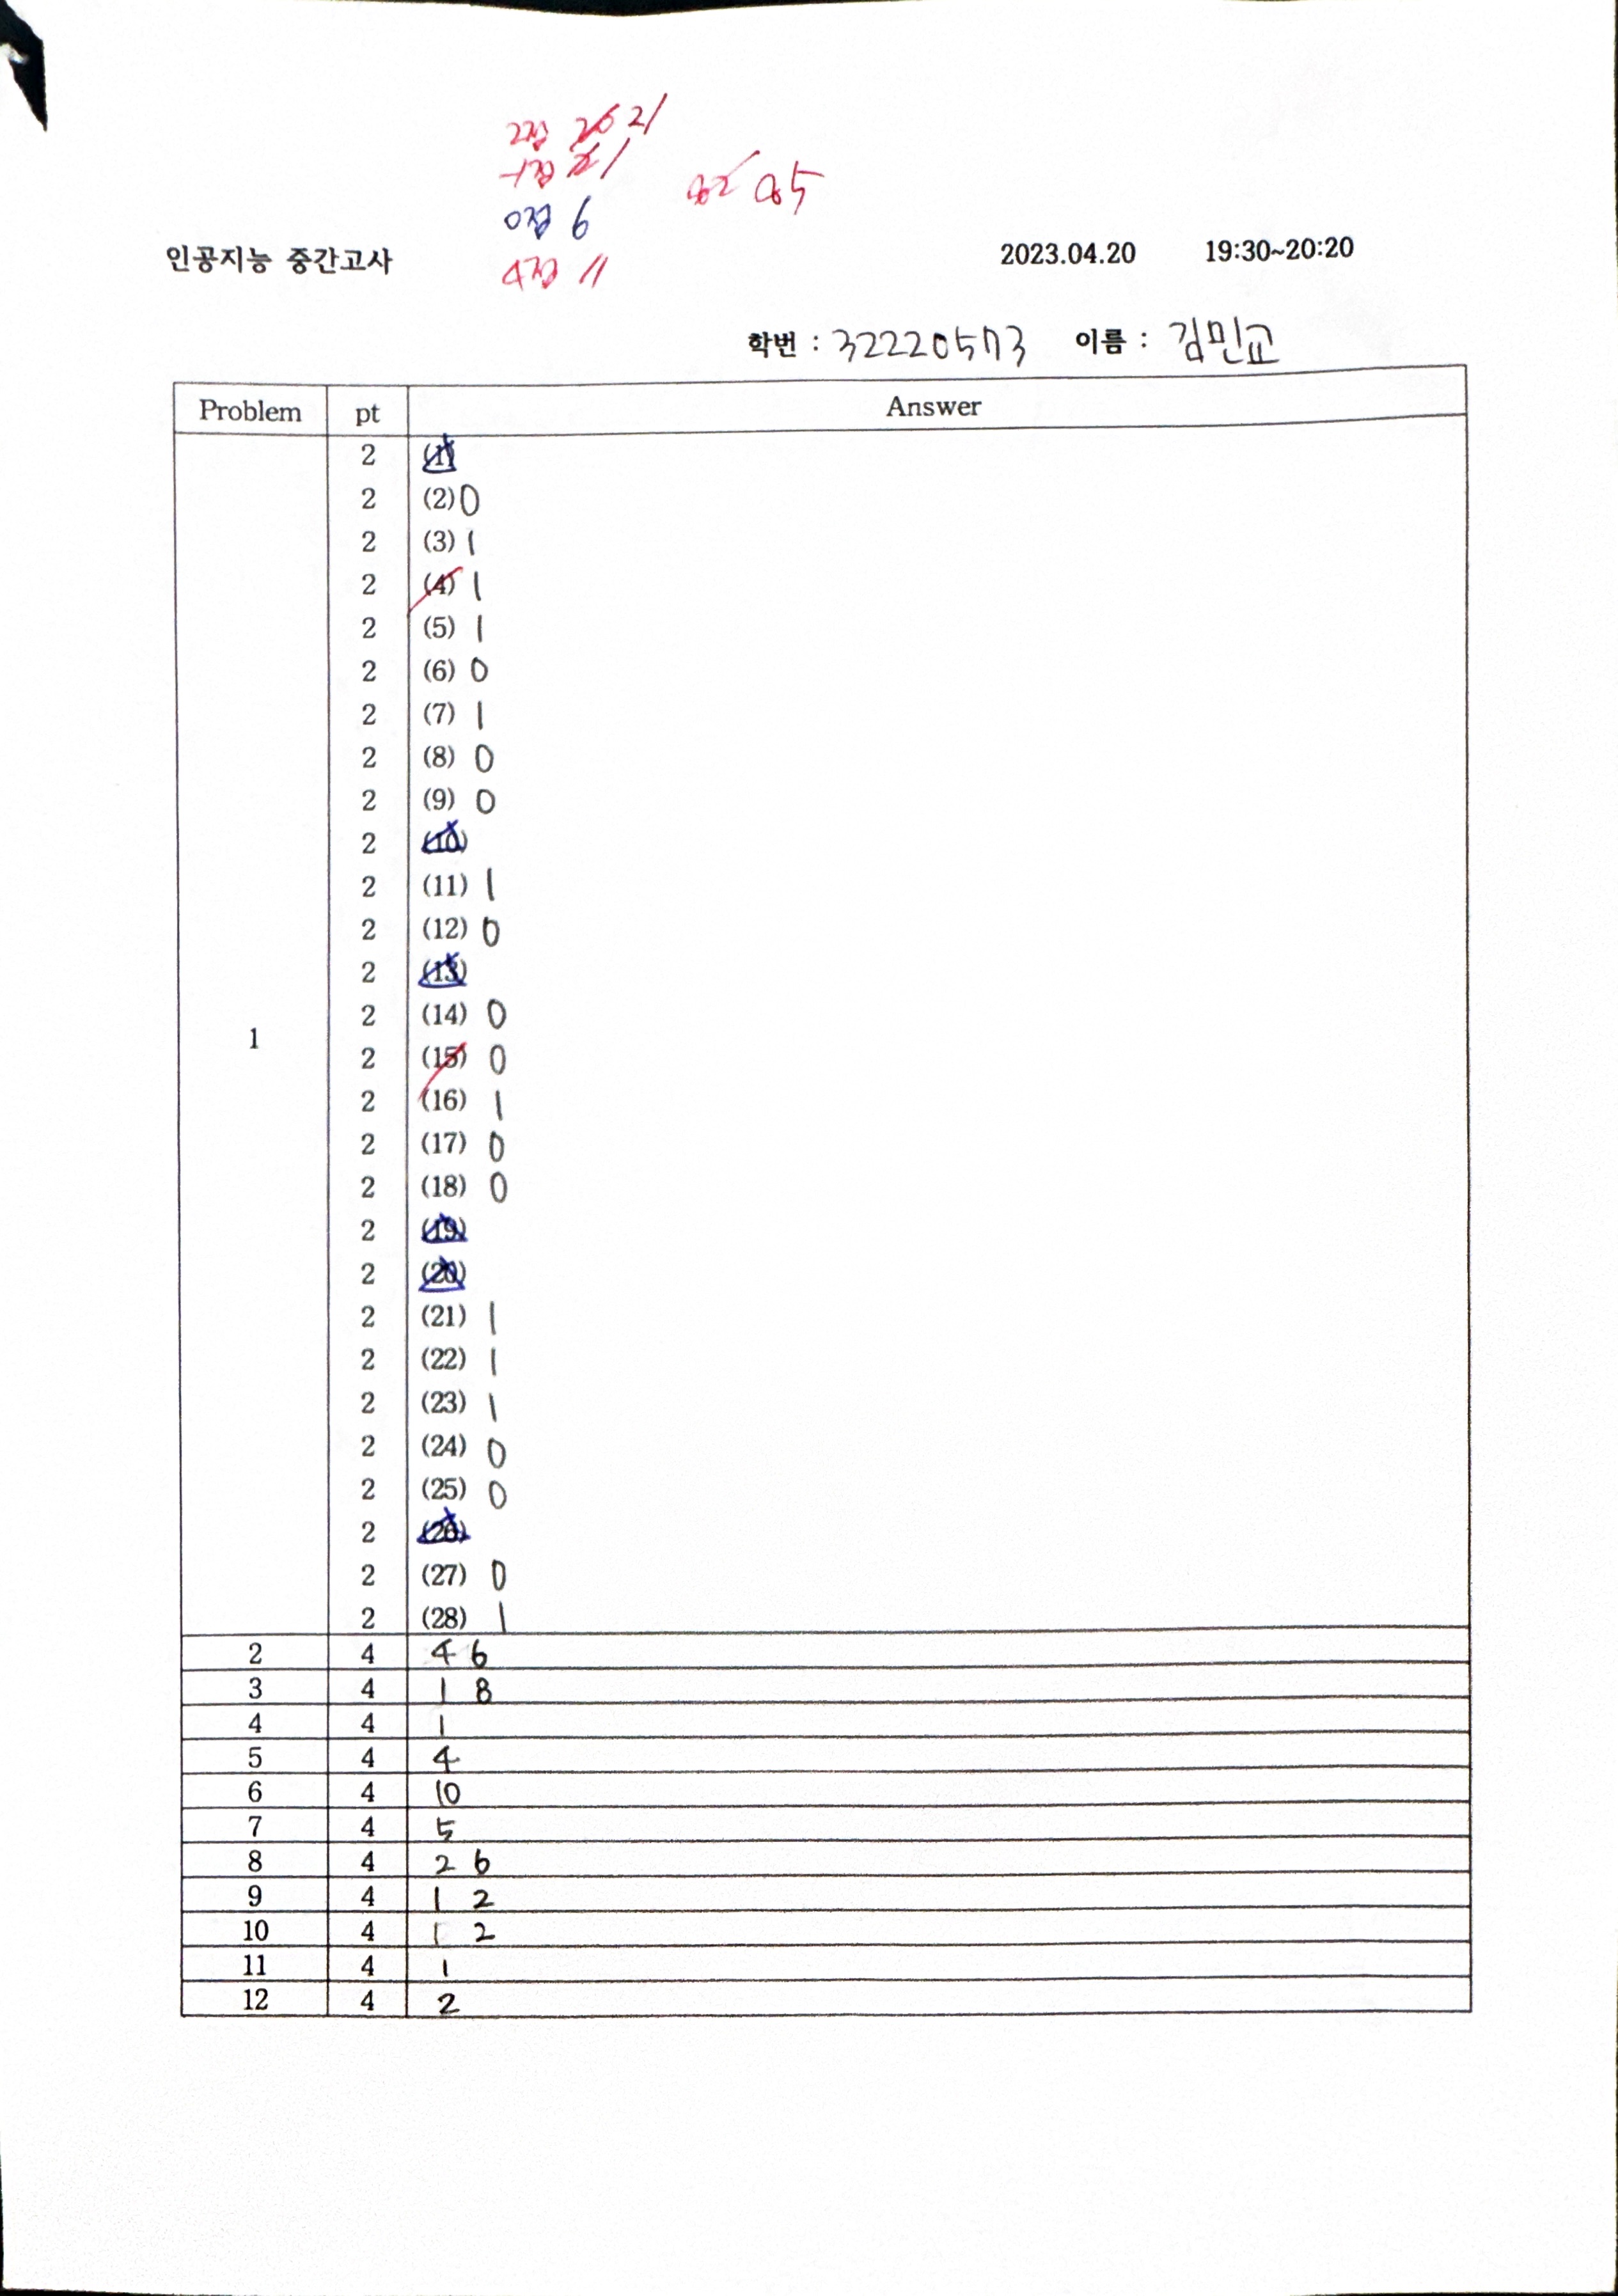 2점 26 21
-1점 2 1
82 85
0점 6
4점 11
인공지능 중간고사 2023.04.20 19:30~20:20
학번 : 32220573 이름 : 김민교
Problem pt Answer
2 (1)
2 (2) 0
2 (3) 1
2 (4) 1
2 (5) 1
2 (6) 0
2 (7) 1
2 (8) 0
2 (9) 0
2 (10)
2 (11) 1
2 (12) 0
2 (13)
2 (14) 0
1
2 (15) 0
2 (16) 1
2 (17) 0
2 (18) 0
2 (19)
2 (20)
2 (21) 1
2 (22) 1
2 (23) 1
2 (24) 0
2 (25) 0
2 (26)
2 (27) 0
2 (28) 1
2 4 4 6
3 4 1 8
4 4 1
5 4 4
6 4 10
7 4 5
8 4 2 6
9 4 1 2
10 4 1 2
11 4 1
12 4 2